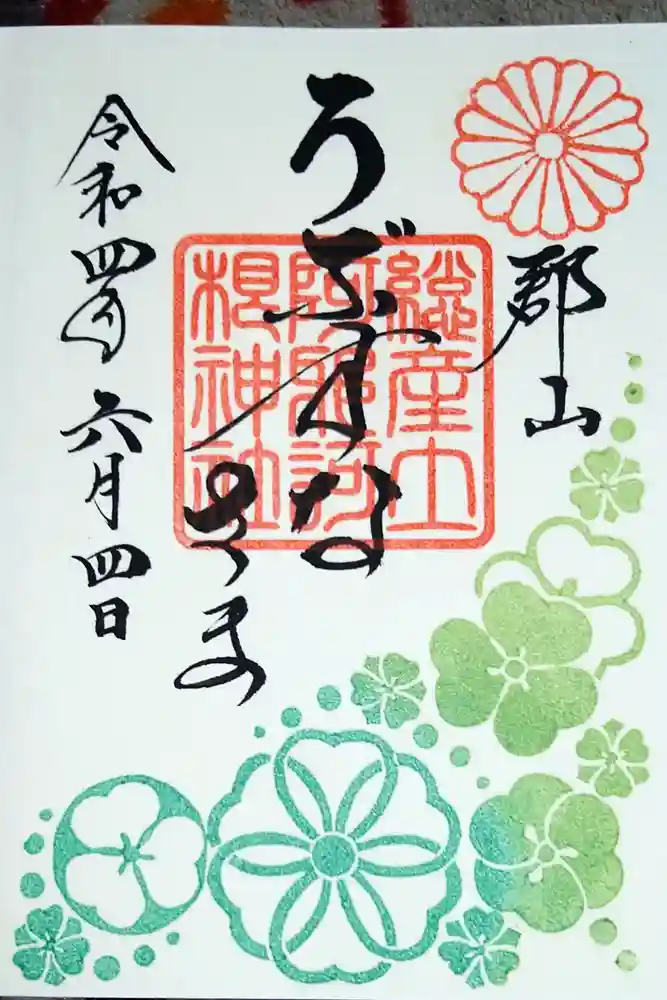 郡山
うぶすな
さま
総産土
阿邪訶
根神社
令和四年六月四日